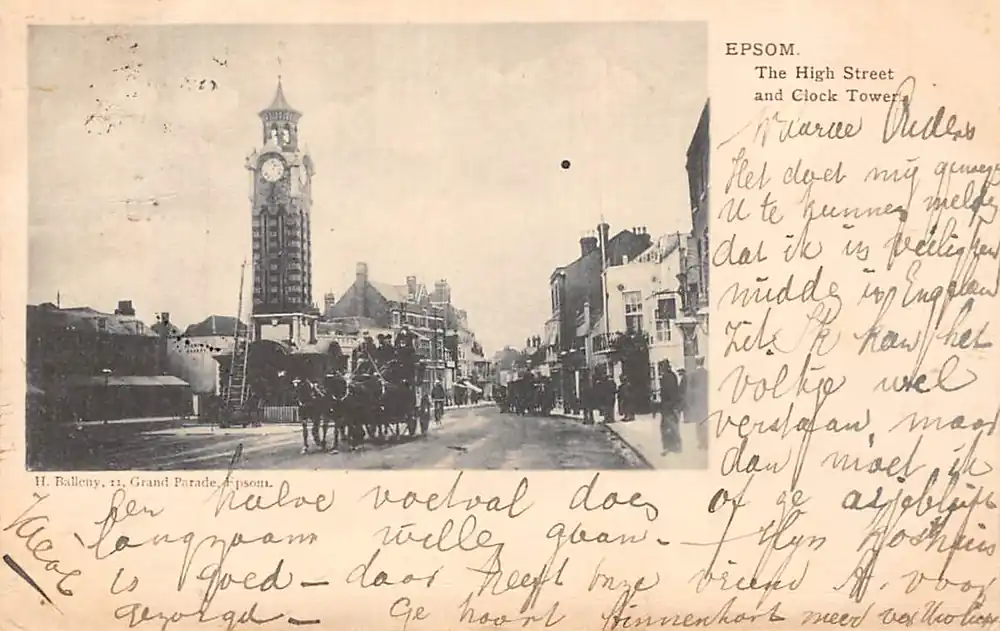 EPSOM.
The High Street
and Clock Tower.
Waarde Ouders
Het doet mij genoegen
U te kunnen melden
dat ik in veiligheid
midden in Engeland
zit. Ik kan het
volkje wel
verstaan, maar
dan moet ik
H. Balleny, 11, Grand Parade, Epsom.
een halve voetval doen of ge asjeblieft
langzaam willen gaan. – Mijn kosthuis
is goed – daar heeft onze vriend A. voor
gezorgd – Ge hoort binnenkort meer van
Jacob